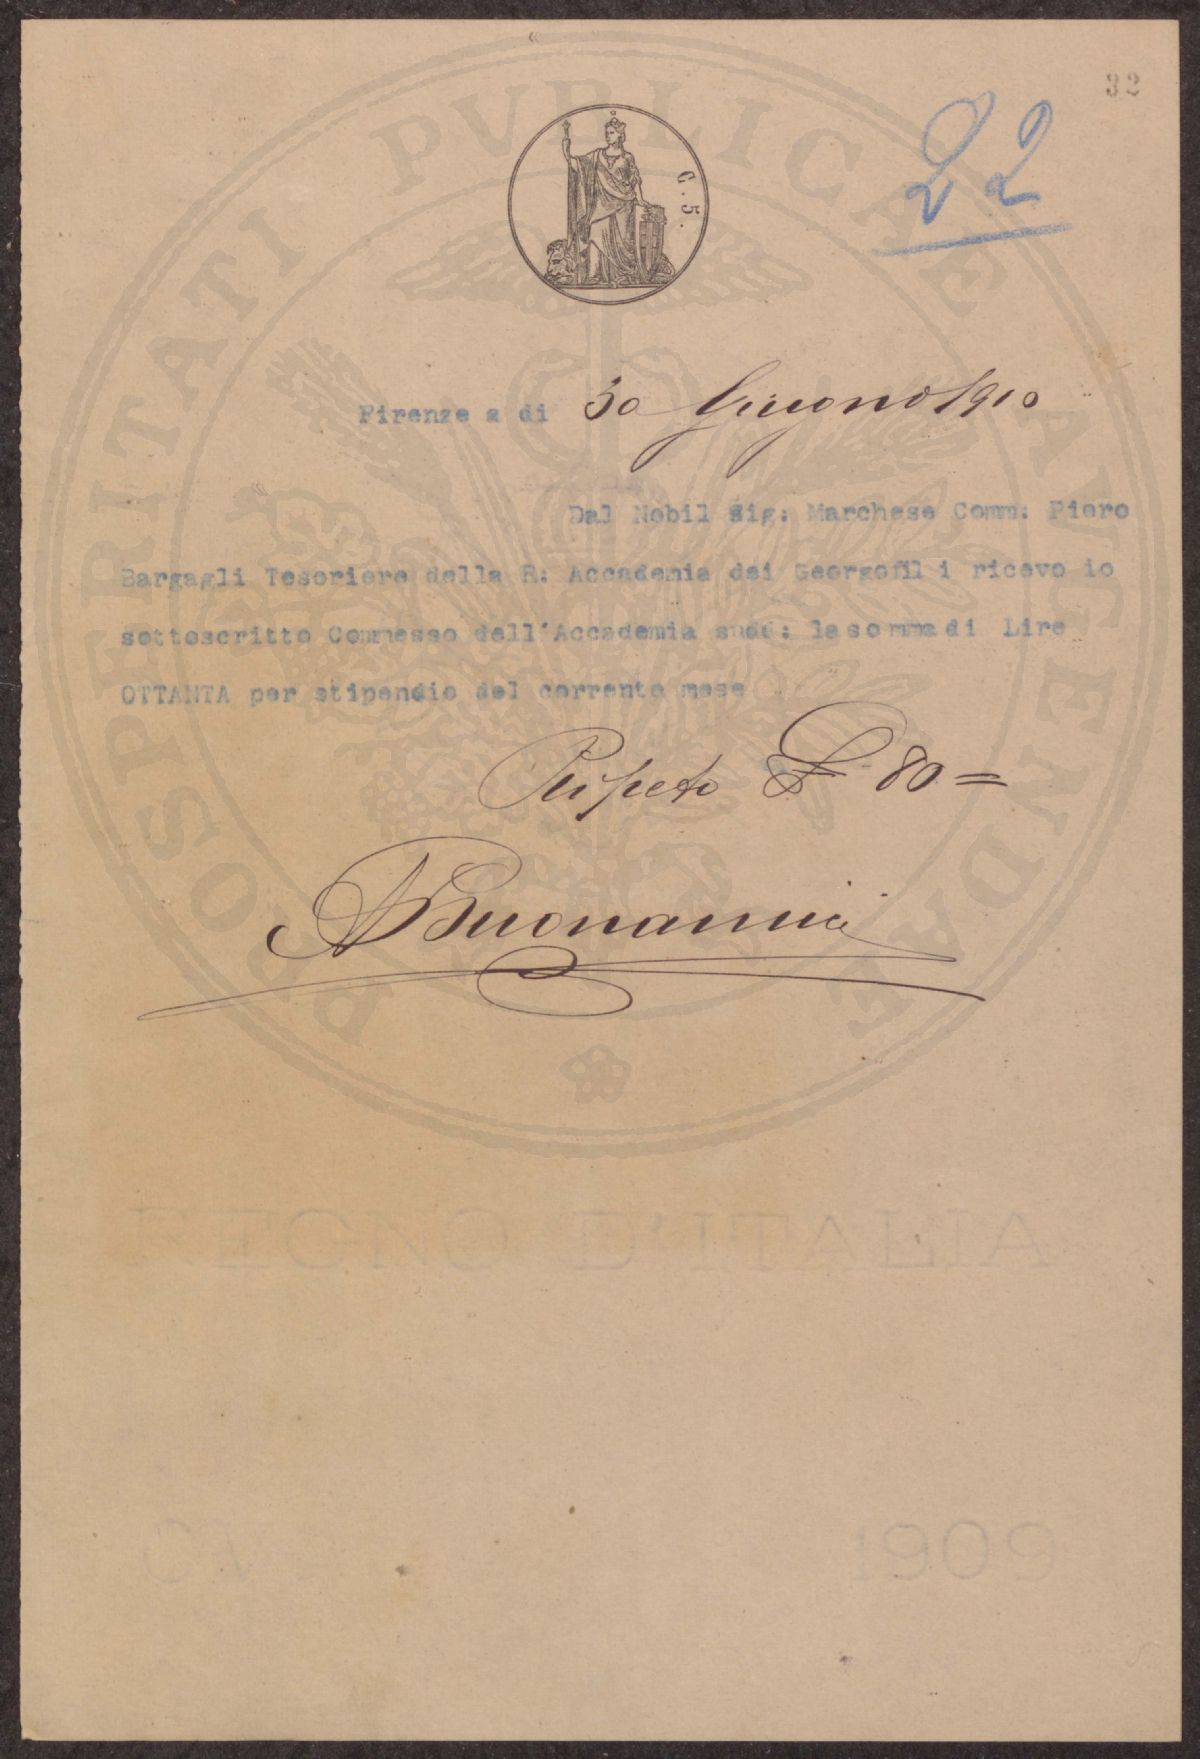 32
22
C. 5.
PROSPERITATI PVBLICAE AVGENDAE
Firenze a di 30 Giugno 1910
Dal Nobil Sig: Marchese Comm: Piero
Bargagli Tesoriere della R: Accademia dei Georgofil i ricevo io
sottoscritto Commesso dell'Accademia sudd: la somma di Lire
OTTANTA per stipendio del corrente mese
Ripeto £ 80 =
A Buonamici
REGNO D'ITALIA
1909